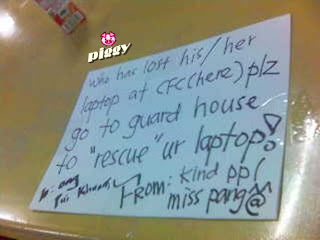 piggy
Who has lost his/her
laptop at CFC(here) plz
go to guard house
to "rescue" ur laptop!
From: kind ppl
miss pang